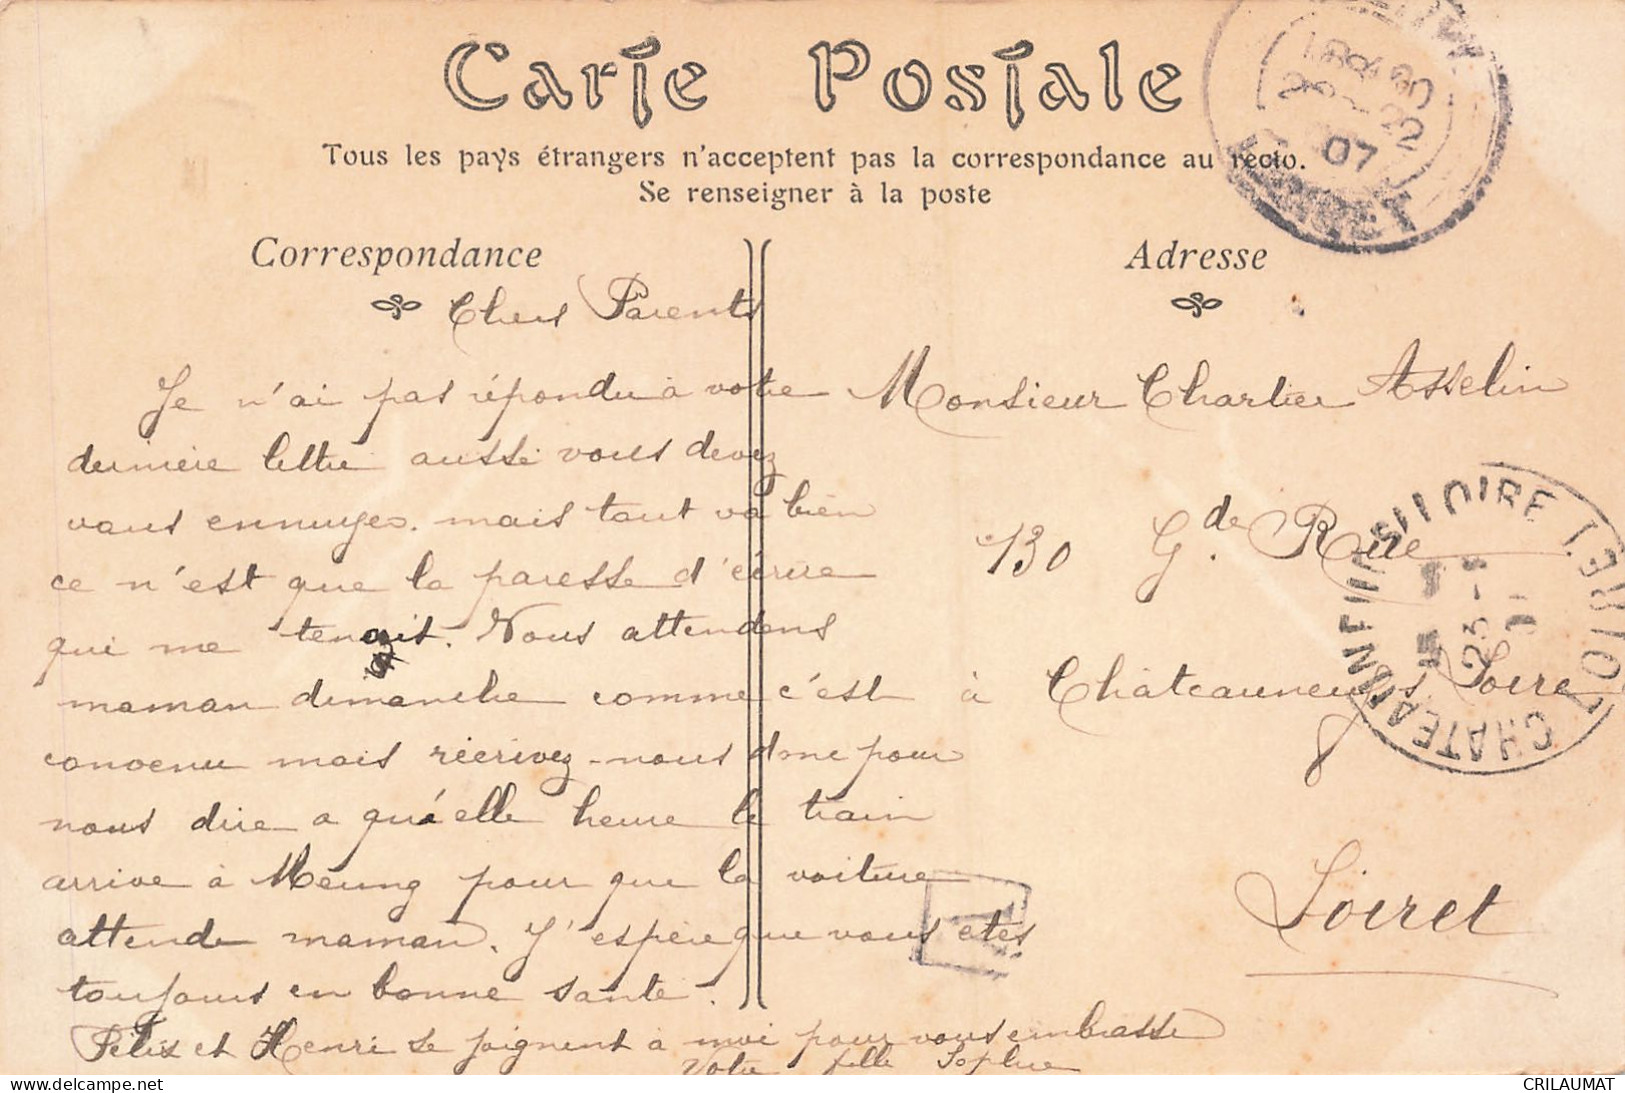 Carte Postale
Tous les pays étrangers n'acceptent pas la correspondance au recto.
Se renseigner à la poste
Correspondance
Chers Parents
Je n'ai pas répondu à votre
dernière lettre aussi vous devez
vous ennuyer. mais tout va bien
ce n'est que la paresse d'écrire
qui me tenait. Nous attendons
maman dimanche comme c'est
convenu mais récrivez-nous donc pour
nous dire a qu'elle heure le train
arrive à Meung pour que la voiture
attende maman. J'espère que vous etes
toujours en bonne santé.
Félix et Henri se joignent à moi pour vous embrasse
Votre fille Sophie
Adresse
Monsieur Charlier Asselin
130 Gde Rue
à Châteauneuf s. Loire
Loiret
07
LOIRET
CHATEAUNEUF S/LOIRE
LOIRET
23
delcampe.net
CRILAUMAT